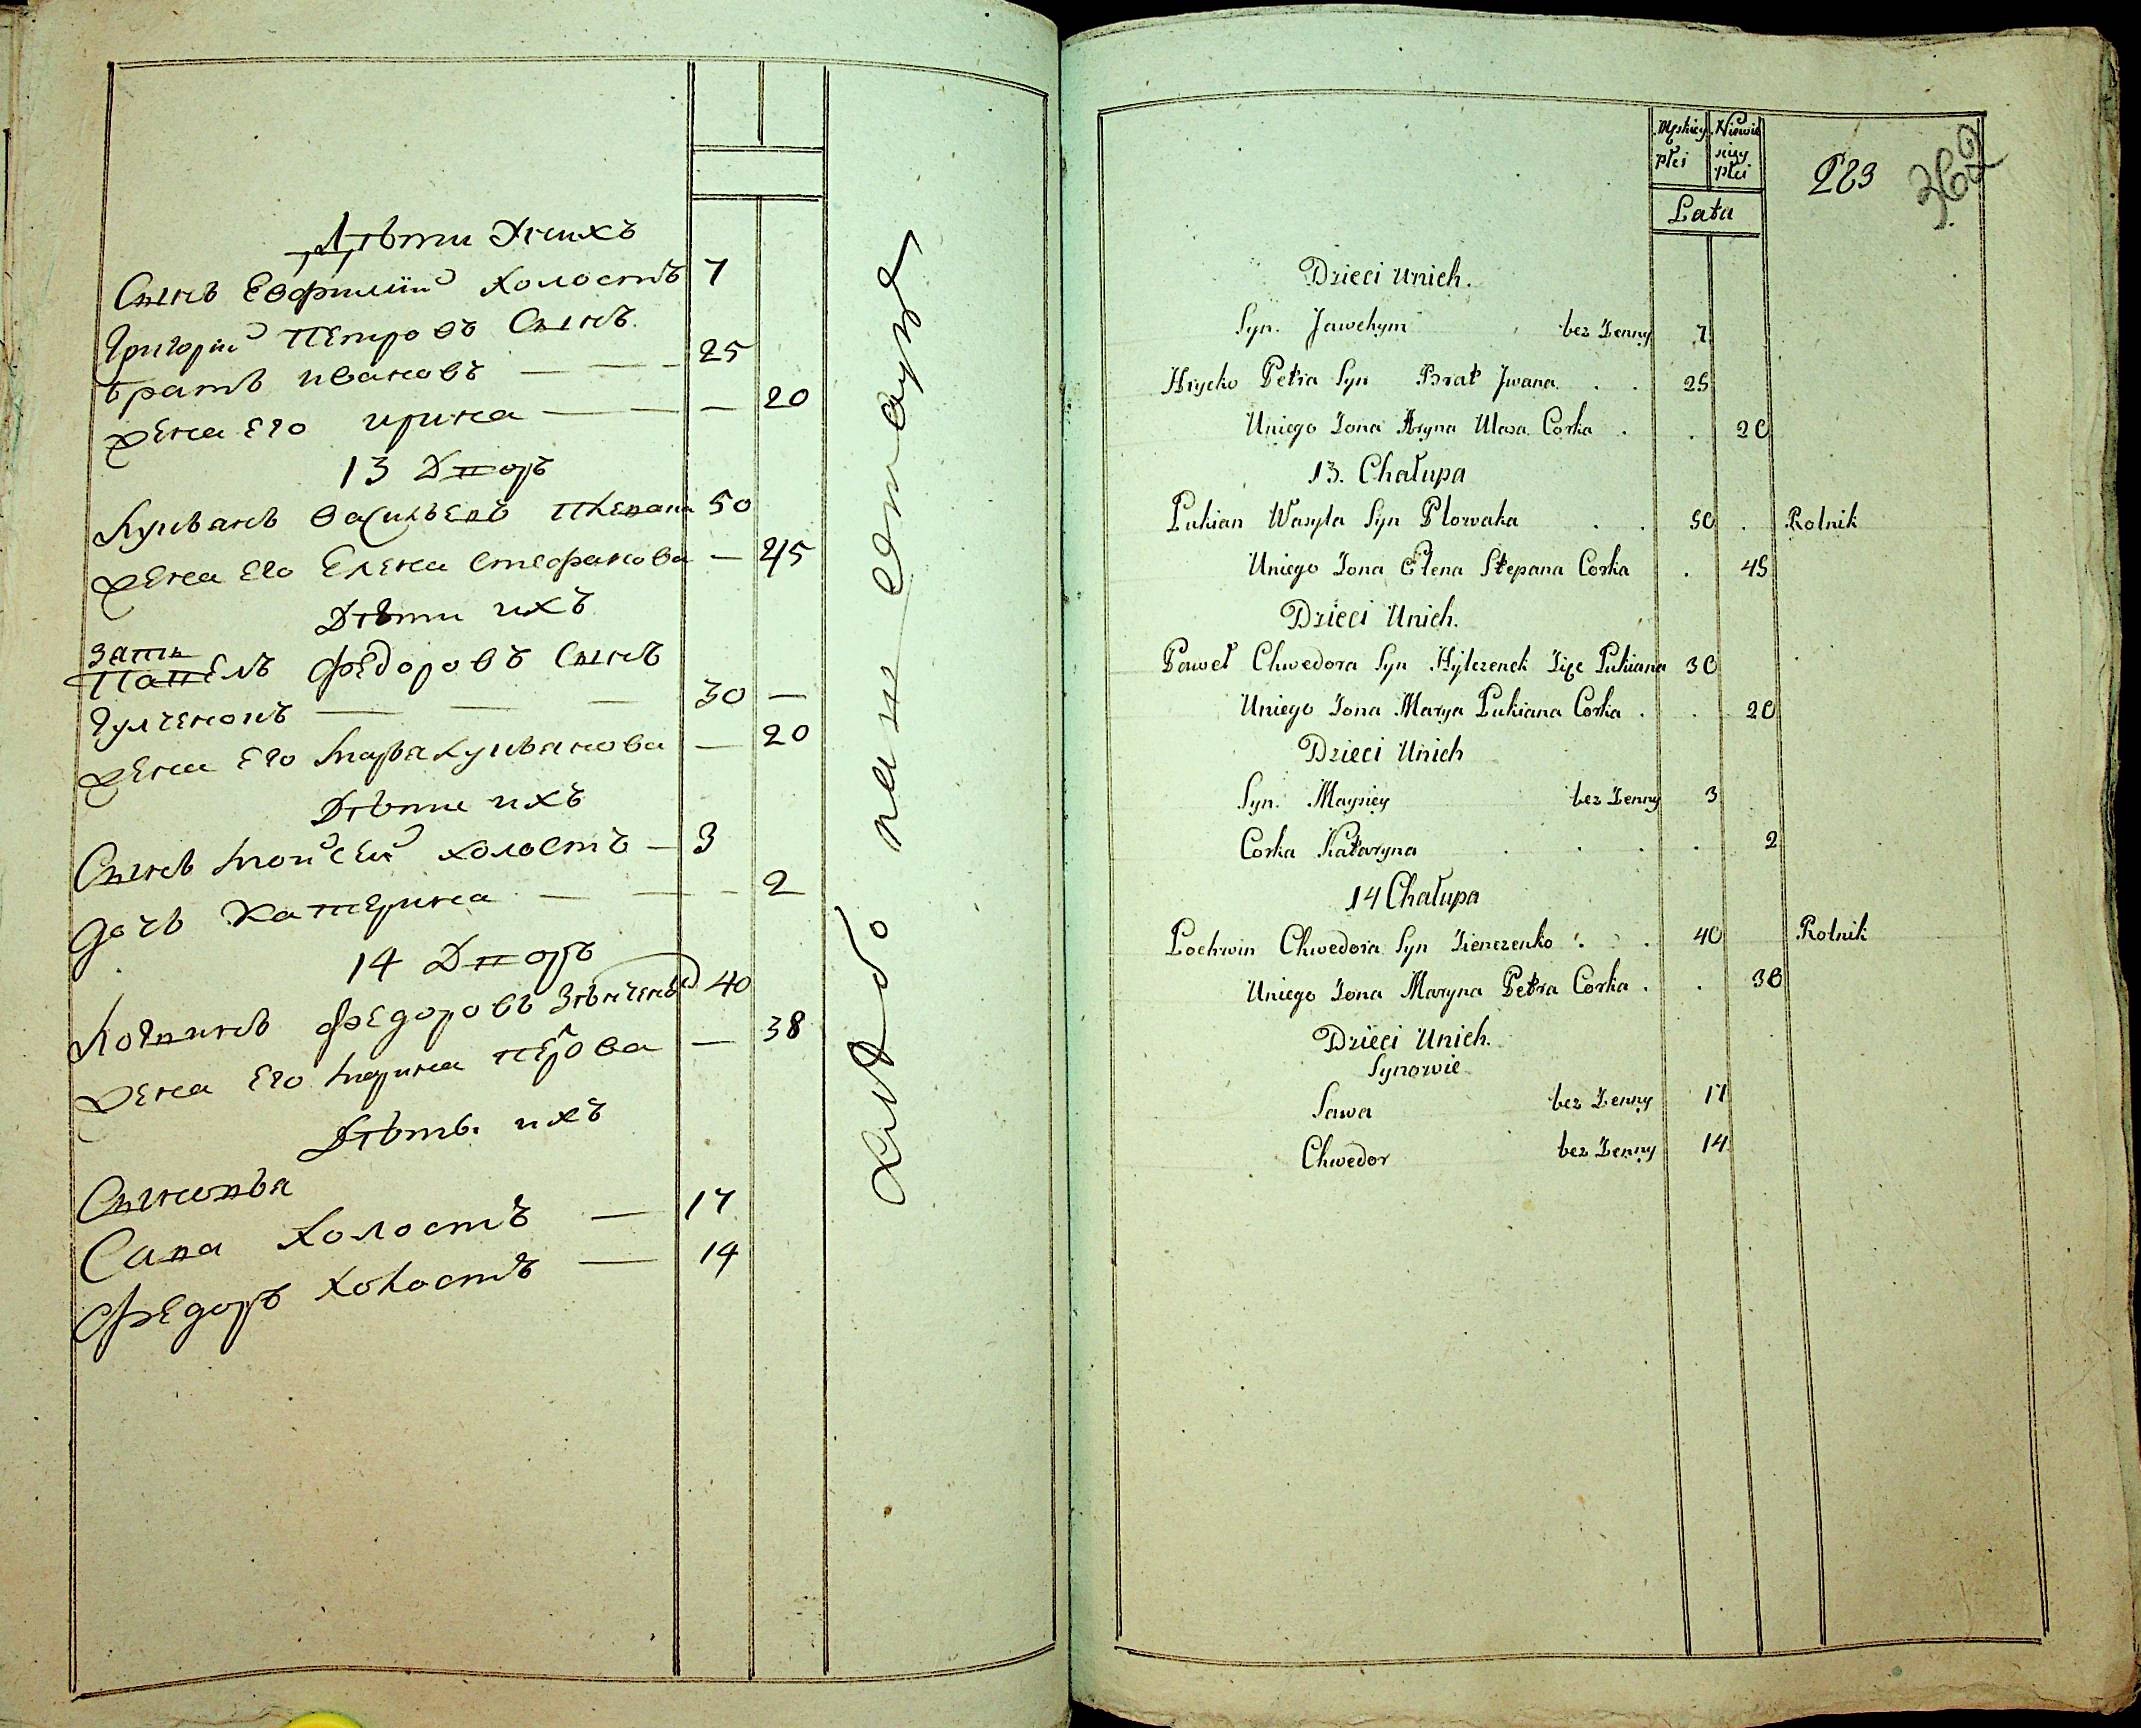 Дѣти Унихъ
Сынъ Евфимiй холостъ 7
Григорiй Петровъ Сынъ
братъ ивановъ — — — 25
жена его ирина — — — 20
13 Дворъ
Лукьянъ Васильевъ 50
жена его Елена степанова — 45
Дѣти ихъ
зять
Павелъ Федоровъ Сынъ
Гулченокъ — — — 30 —
жена его марья лукьянова — 20
Дѣти ихъ
Сынъ мойсей холостъ — 3
дочь Катерина — — - 2
14 Дворъ
Логвинъ Федоровъ 40
жена его марина петрова — 38
Дѣти ихъ
Сыновья
Сава холостъ — 17
Федоръ холостъ — 14
Męskiey Płci
Niewieściey Płci
Lata
283
362
Dzieci Unich.
Syn. Jawchym bez Żenny 7
Hrycko Petra Syn Brat Jwana . . 25
Uniego Żona Aryna Ułasa Corka . . 20
13. Chałupa
Łukian Wasyla Syn Plowaka . . 50 . Rolnik
Uniego Żona Elena Stepana Corka . 45
Dzieci Unich.
Paweł Chwedora Syn Hylczenek Zięć Łukiana 30
Uniego Żona Marya Łukiana Corka . . 20
Dzieci Unich
Syn. Maysiey bez Żenny 3
Corka Kataryna . . . . 2
14 Chałupa
Łochwin Chwedora Syn Zienczenko . . . 40 Rolnik
Uniego Żona Maryna Petra Corka . . 38
Dzieci Unich.
Synowie
Sawa bez Żenny 17
Chwedor bez Żenny 14